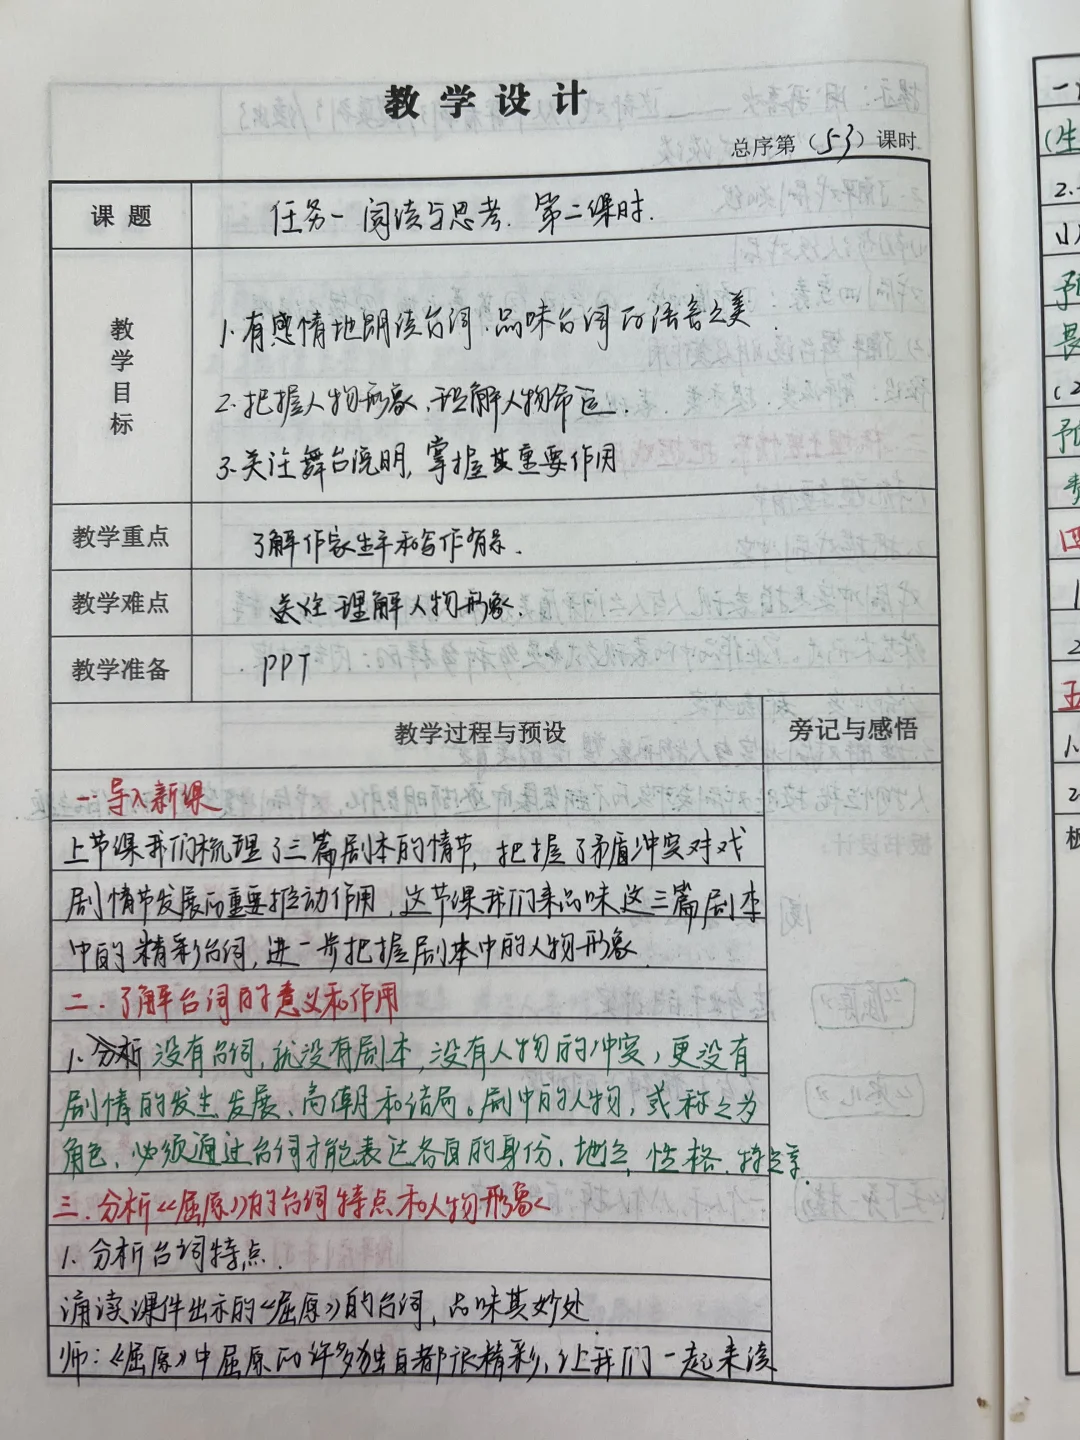 教学设计
总序第（53）课时
课题 任务一 阅读与思考. 第二课时.
教学目标
1. 有感情地朗读台词, 品味台词的语言之美.
2. 把握人物形象, 理解人物命运.
3. 关注舞台说明, 掌握其重要作用
教学重点 了解作家生平和写作背景.
教学难点 理解人物形象.
教学准备 PPT
教学过程与预设 旁记与感悟
一. 导入新课
上节课我们梳理了三篇剧本的情节, 把握了矛盾冲突对戏
剧情节发展的重要推动作用, 这节课我们来品味这三篇剧本
中的精彩台词, 进一步把握剧本中的人物形象.
二. 了解台词的意义和作用
1. 分析 没有台词, 就没有剧本, 没有人物的冲突, 更没有
剧情的发生发展、高潮和结局。剧中的人物, 或称之为
角色, 必须通过台词才能表达各自的身份, 地位, 性格, 特点等.
三. 分析《屈原》的台词特点和人物形象
1. 分析台词特点.
诵读课件出示的《屈原》的台词, 品味其妙处.
师:《屈原》中屈原的许多独白都很精彩, 让我们一起来读
一
(生
2.
四
1
2
五
1.
2
板